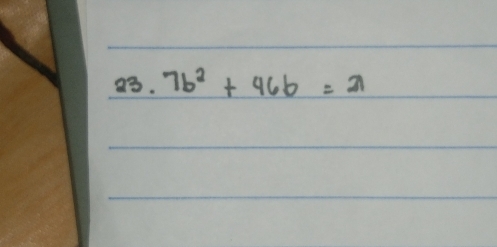 23. 7b² + 96b = 21